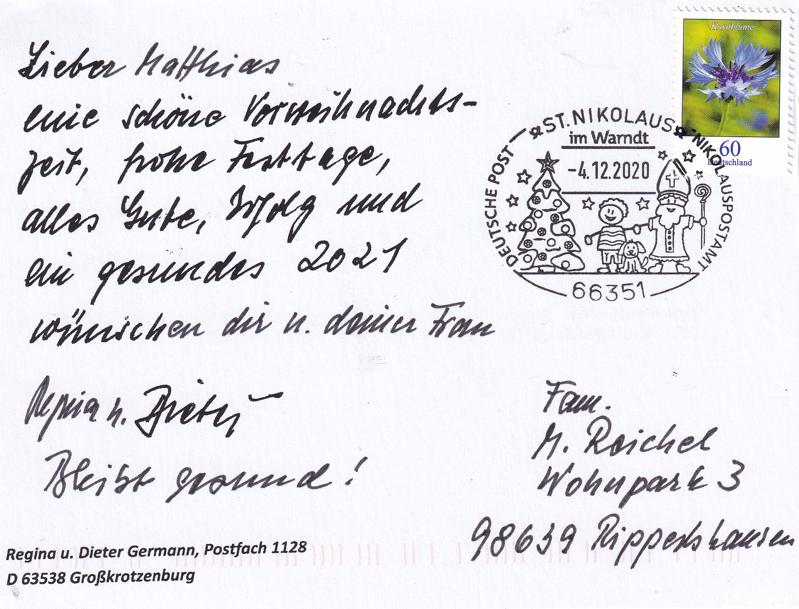 Lieber Matthias
eine schöne Vorweihnachts-
zeit, frohe Festtage,
alles Gute, Erfolg und
ein gesundes 2021
wünschen dir u. deiner Frau
Regina u. Dieter
Bleibt gesund!
Kornblume
60
Deutschland
DEUTSCHE POST ST. NIKOLAUS NIKOLAUSPOSTAMT
im Warndt
-4.12.2020
66351
Fam.
M. Reichel
Wohnpark 3
98639 Rippershausen
Regina u. Dieter Germann, Postfach 1128
D 63538 Großkrotzenburg